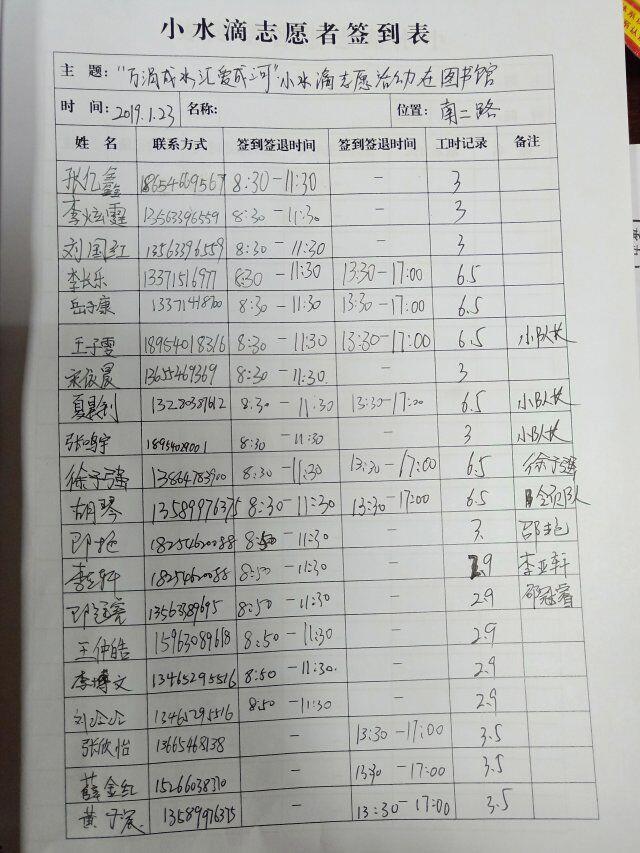 小水滴志愿者签到表
主 题: "万滴成水汇爱成河"小水滴志愿活动在图书馆
时 间: 2019.1.23 名称: 位置: 南二路
姓 名 联系方式 签到签退时间 签到签退时间 工时记录 备注
张亿鑫 18654669567 8:30-11:30 - 3
李炫霏 13563396559 8:30-11:30 - 3
刘国红 13563396559 8:30-11:30 - 3
李长乐 13371516977 8:30-11:30 13:30-17:00 6.5
岳子康 8:30-11:30 13:30-17:00 6.5
王子雯 18954018316 8:30-11:30 13:30-17:00 6.5 小队长
宋依晨 13655469369 8:30-11:30. - 3
夏 13280387612 8:30-11:30 13:30-17:00 6.5 小队长
张鸣宇 8:30-11:30 - 3 小队长
徐子强 13864783900 8:30-11:30 13:30-17:00 6.5 徐子强
胡琴 13589976375 8:30-11:30 13:30-17:00 6.5
18254620088 8:50-11:30 - 3.
李亚轩 18254620088 8:50-11:30 - 2.9 李亚轩
邵冠睿 13563389695 8:50-11:30 - 2.9 邵冠睿
王仲皓 15963089618 8:50-11:30 - 2.9
李博文 13465295516 8:50-11:30. - 2.9
刘 13465295516 8:50-11:30 - 2.9
张欣怡 13665468138 - 13:30-17:00 3.5
薛金红 15266038310 - 13:30-17:00 3.5
黄子宸 13589976375 - 13:30-17:00 3.5